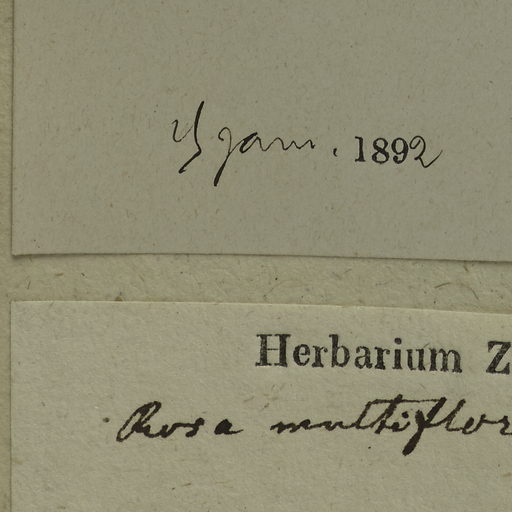 janv. 1892
Herbarium Z
Rosa multiflor